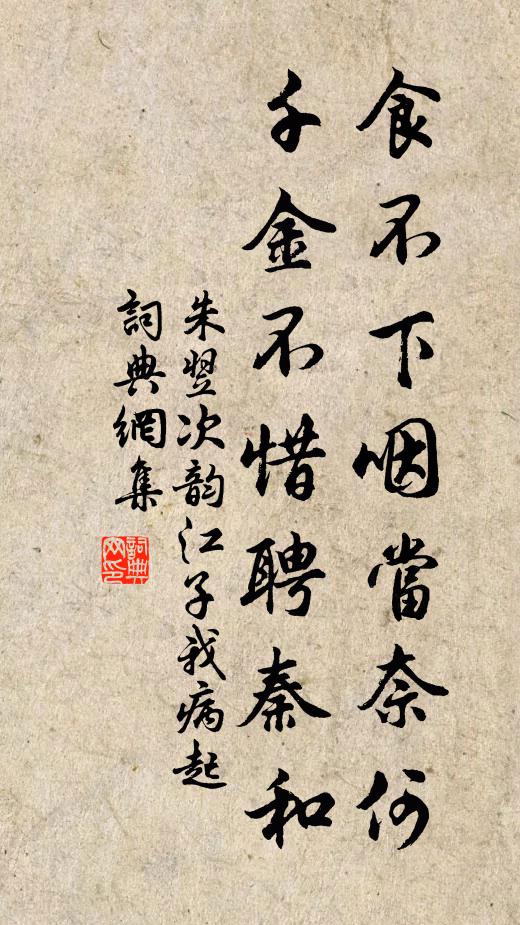 食不下咽當奈何
千金不惜聘秦和
朱翌次韵江子我病起
詞典網集
詞典网印